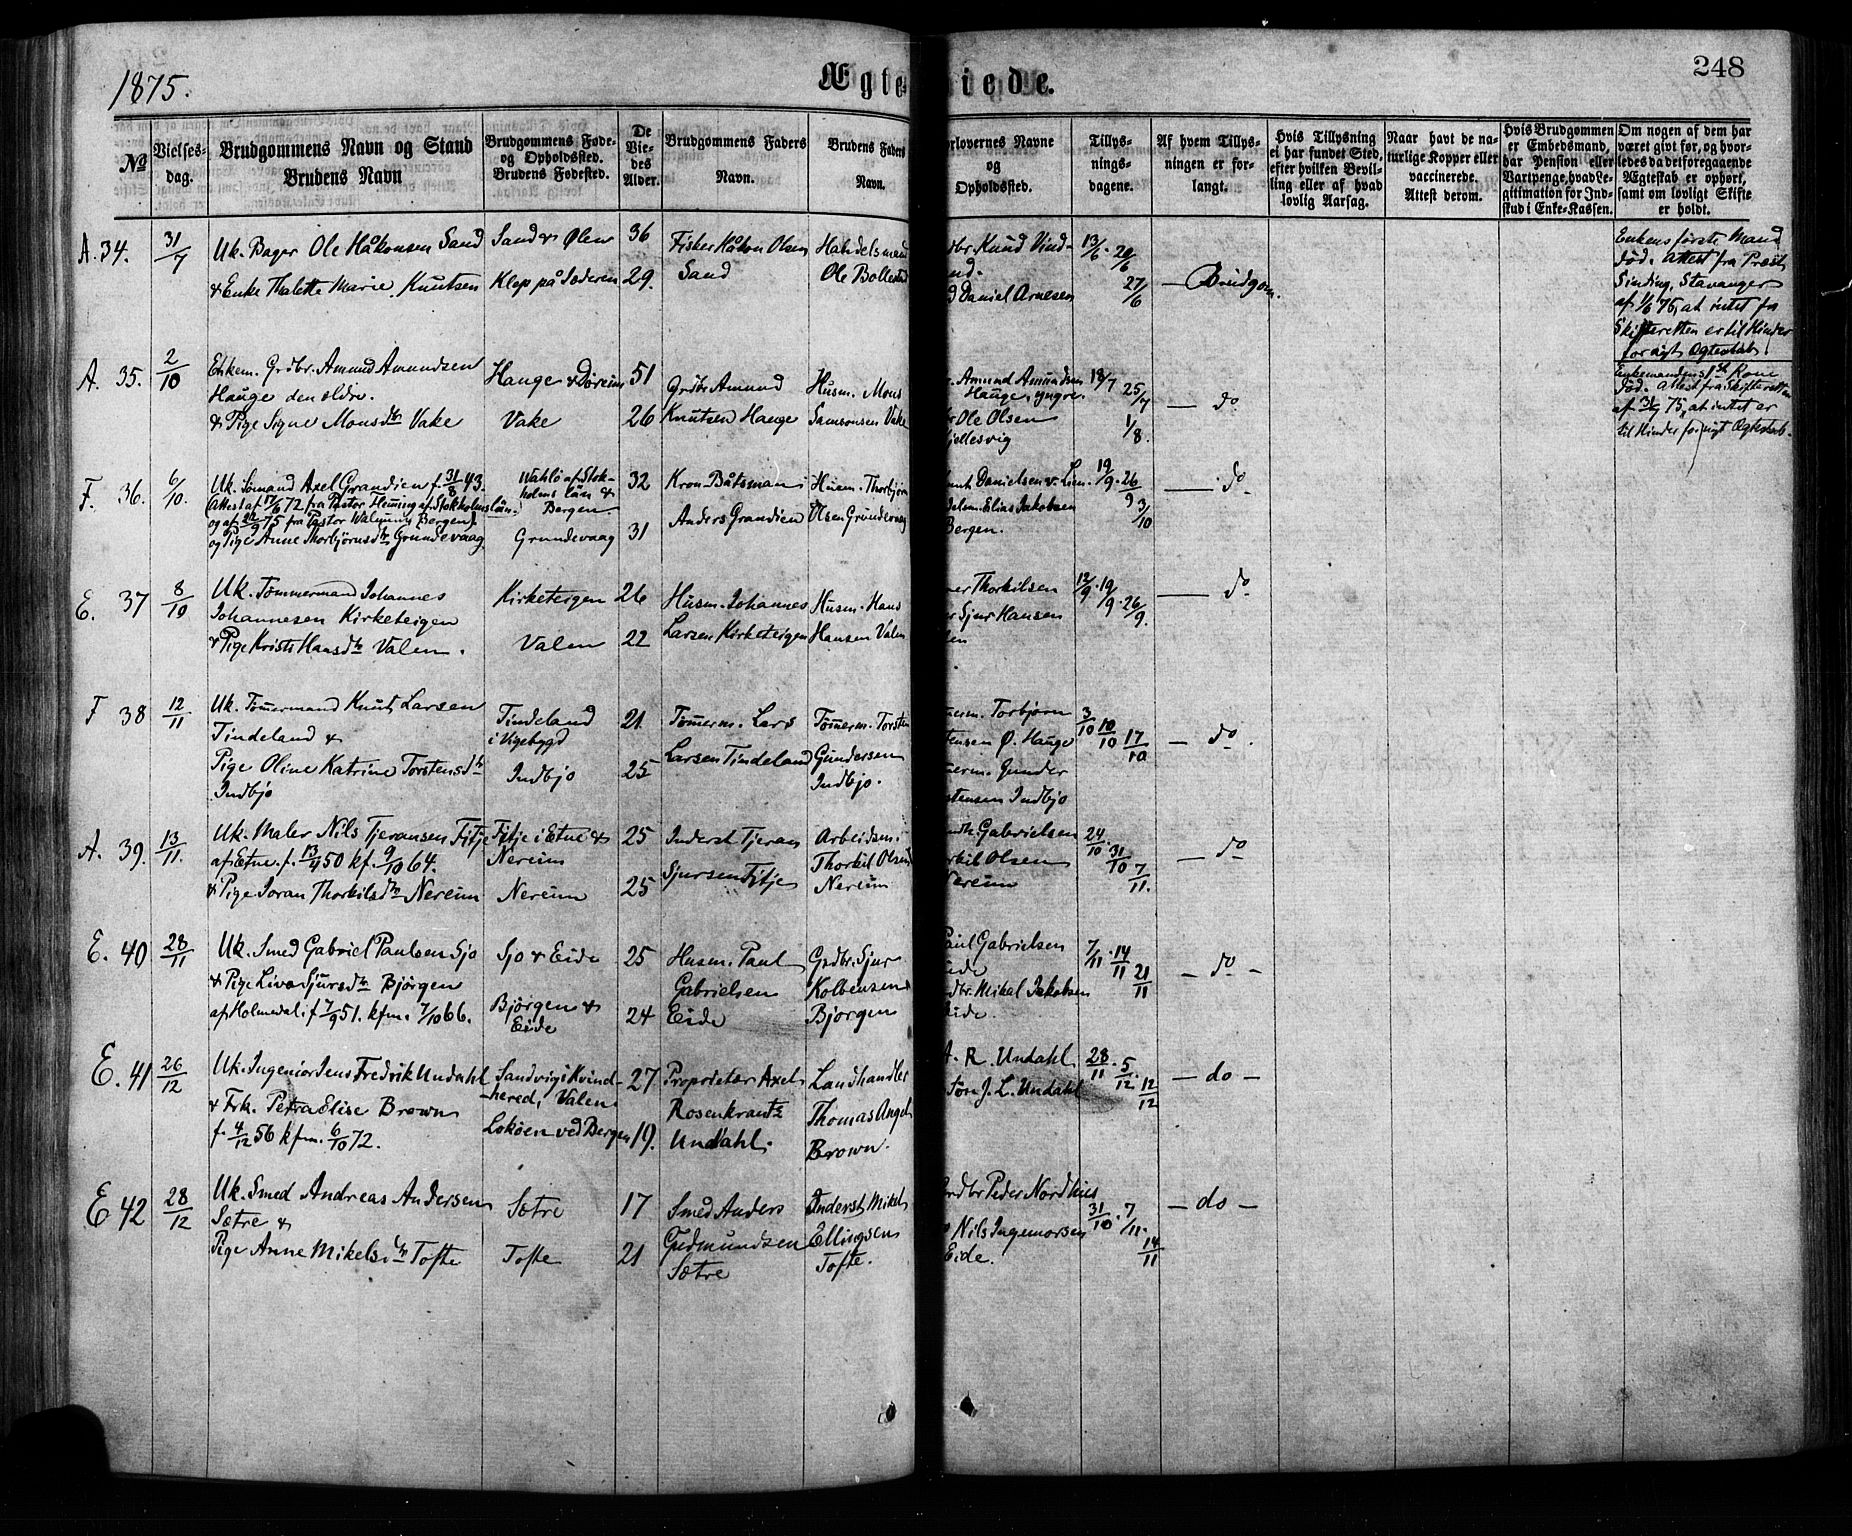 1875.
Ægteviede.
248
No
Vielses-
dag.
Brudgommens Navn og Stand
Brudens Navn
Brudgommens Føde-
og Opholdssted.
Brudens Fødested.
De
Vie-
des
Alder.
Brudgommens Faders
Navn.
Brudens Faders
Navn.
orlovernes Navne
og
Opholdssted.
Tillys-
nings-
dagene.
Af hvem Tillys-
ningen er for-
langt.
Hvis Tillysning
ei har fundet Sted,
efter hvilken Bevil-
ling eller af hvad
lovlig Aarsag.
Naar havt de na-
turlige Kopper eller
vaccinerede.
Attest derom.
Hvis Brudgommen
er Embedsmand,
har Pension eller
Vartpenge, hvad Le-
gitimation for Ind-
skud i Enke-Kassen.
Om nogen af dem har
været givt før, og hvor-
ledes da det foregaaende
Ægteskab er ophørt,
samt om lovligt Skifte
er holdt.
A. 34. 31/7
Uk. Bager Ole Håkonsen Sand
& Enke Thalette Marie Knutsen
Sand & Ølen
Klep på Jæderen
36
29.
Fisker Håkon Olsen
Sand
Handelsmand
Ole Bollestad
dbr Knud Vind-
nd.
d Daniel Arnesen
13/6. 20/6
27/6
— Brudgom.
Enkens første Mand
død. Attest fra Præst
Sinding, Stavanger
af 1/6 75, at intet fra
Skifteretten er til Hinder
for nyt Ægteskab.
A. 35. 2/10
Enkem. Grdbr. Amund Amundsen
Hauge den ældre.
& Pige Signe Monsdtr Vake
Hauge & Døreim
Vake
51
26
Grdbr. Amund
Knutsen Hauge
Husm. Mons
Samsonsen Vake
r. Amund Amundsen
Hauge, yngre.
br Ole Olsen
jellesvig
18/7 25/7
1/8.
— do
Enkemandens 1ste Kone
død. Attest fra Skifteretten
af 31/7 75, at intet er
til Hinder for nyt Ægteskab.
F. 36. 6/10.
Uk. Sömand Axel Grandien f. 31/8 43.
(Attest af 17/6 72 fra Pastor Heming af Stokholms län.
og af 22/9 75 fra Pastor Walnum Bergen)
og Pige Anne Thorbjørnsdtr Grundevaag
Wahlö af Stok-
holms län &
Bergen.
Grundevaag
32
31
Kron-Båtsman
Anders Grandien
Husm. Thorbjørn
Olsen Grundevaag
Danielsen v. Lien.
Elias Jakobsen
Bergen.
19/9. 26/9
3/10
— do
E. 37 8/10
Uk. Tømmermand Johannes
Johannesen Kirketeigen
& Pige Kristi Hansdtr Valen.
Kirketeigen
Valen
26
22
Husm. Johannes
Larsen Kirketeigen
Husm. Hans
Hansen Valen
ner Thorkilsen
er Sjur Hansen
len
12/9. 19/9. 26/9.
— do
F 38 12/11
Uk. Tømermand Knut Larsen
Tindeland &
Pige Oline Katrine Torstensdtr
Indbjo
Tindeland
i Vigebygd
Indbjo
21
25
Tømerm. Lars
Larsen Tindeland
Tømerm. Torsten
Gundersen
Indbjo.
merm. Torbjørn
tensen Ø. Hauge
merm. Gunder
stensen Indbjo
3/10 10/10 17/10
— do.
A. 39. 13/11.
Uk. Maler Nils Tjeransen Fitje
af Etne. f. 13/4 50 kf. 9/10 64.
& Pige Joran Thorkilsdtr Nereim
Fitje i Etne &
Nereim
Nereim
25
25
Inderst Tjeran
Sjursen Fitje
Arbeidsm.
Thorkil Olsen
Nereim
Gabrielsen
rkil Olsen
Nereim
24/10 31/10 7/11.
— do
E. 40 28/11
Uk. Smed Gabriel Paulsen Sjo
& Pige Liva Sjursdtr Bjørgen
af Holmedal. f 7/9 51. kfm. 7/10 66.
Sjo & Eide
Bjørgen &
Eide
25
24
Husm. Paul
Gabrielsen
Eide
Grdbr. Sjur
Kolbensen
Bjørgen
Paul Gabrielsen
Eide
dbr. Mikal Jakobsen
Eide.
7/11. 14/11 21/11
— do —
E. 41 26/12
Uk. Ingeniør Jens Fredvik Undahl
& Frk. Petra Elise Brown
f. 4/12 56 kfm. 6/10 72.
Sandvig i Kvind-
hered, Valen
Loköen ved Bergen
27
19.
Proprietær Axel
Rosenkrantz
Undahl.
Landhandler
Thomas Angel
Brown.
A. R. Undahl
Søn J. L. Undahl
28/11. 5/12. 12/12
— do —
E 42 28/12
Uk. Smed Andreas Andersen
Sætre &
Pige Anne Mikelsdtr Tofte
Sætre
Tofte
17
21
Smed Anders
Gudmundsen
Sætre
Inderst Mikel
Ellingsen
Tofte.
Grdbr Peder Nordhus
Nils Ingemorsen
Eide.
31/10. 7/11.
14/11
— do —